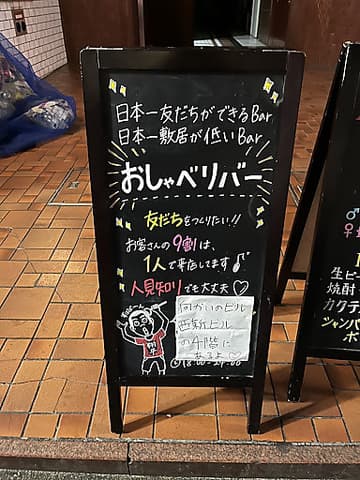 日本一友だちができるBar
日本一敷居が低いBar
おしゃべりバー
友だちをつくりたい!!
お客さんの9割は、
1人で来店してます♪
人見知りでも大丈夫♡
向かいのビル
西新ビル
の4階に
あるよ♡
生ビー
焼酎
カクテ
シャンパ